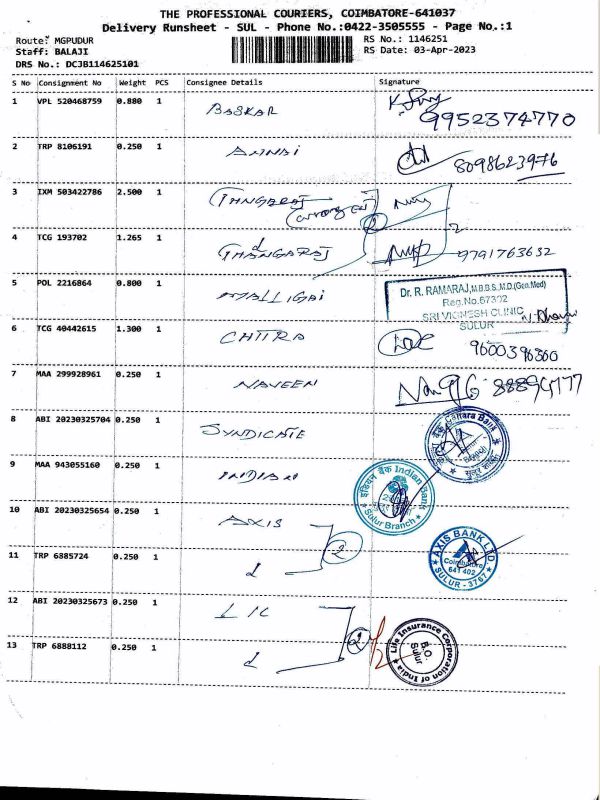 THE PROFESSIONAL COURIERS, COIMBATORE-641037
Delivery Runsheet - SUL - Phone No.:0422-3505555 - Page No.:1
Route: MGPUDUR RS No.: 1146251
Staff: BALAJI RS Date: 03-Apr-2023
DRS No.: DCJB114625101
S No Consignment No Weight PCS Consignee Details Signature
1 VPL 520468759 0.880 1 BASKAR 9952374770
2 TRP 8106191 0.250 1 ANNAI 8098623976
3 IXM 503422786 2.500 1 THANGARAJ
2 2
4 TCG 193702 1.265 1 THANGARAJ 9791763632
5 POL 2216864 0.800 1 MALLIGAI
Dr. R. RAMARAJ, M.B.B.S.,M.D.(Gen.Med)
Reg.No.67302
SRI VIGNESH CLINIC
SULUR
6 TCG 40442615 1.300 1 CHITRA 9600396360
7 MAA 299928961 0.250 1 NAVEEN
8 ABI 20230325704 0.250 1 SYNDICATE
Canara Bank
9 MAA 943055160 0.250 1 INDIAN
इंडियन बैंक Indian Bank
Sulur Branch
10 ABI 20230325654 0.250 1 AXIS
2
AXIS BANK LTD
Coimbatore
641 402
SULUR - 3767
11 TRP 6885724 0.250 1
12 ABI 20230325673 0.250 1 LIC
2
Life Insurance Corporation of India
B.O.
Sulur
13 TRP 6888112 0.250 1